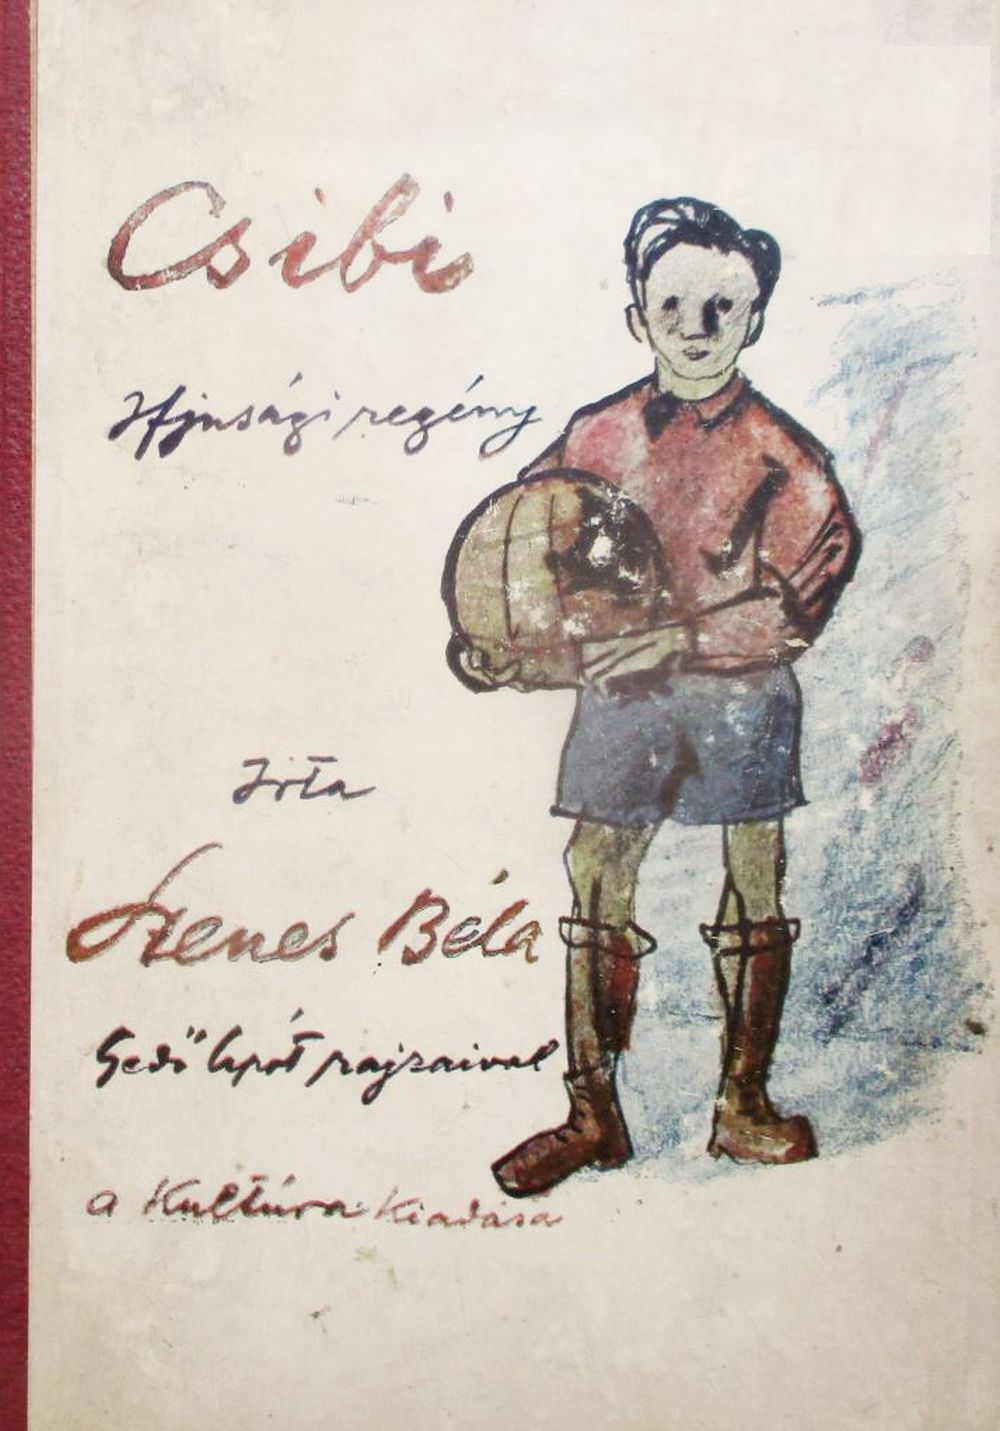 Csibi
Ifjusági regény
Irta
Szenes Béla
Gedő Lipót rajzaival
a Kultúra Kiadása